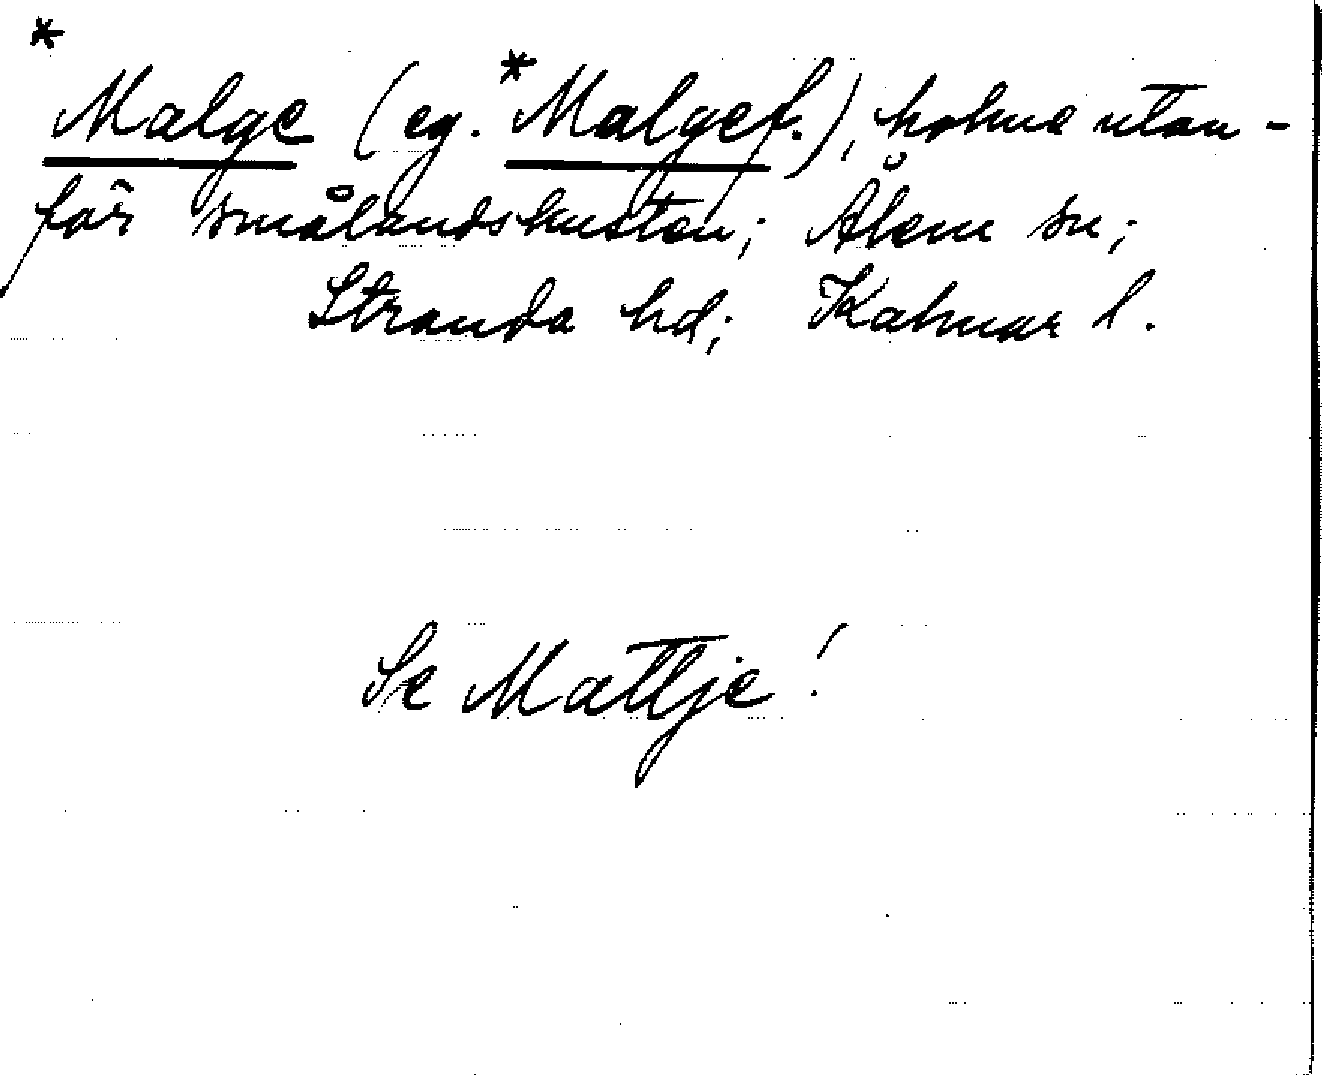 *Malge (eg. *Malgef.), holme utan-
för smålandskusten; Ålem sn;
Stranda hd; Kalmar l.
Se Mattje!